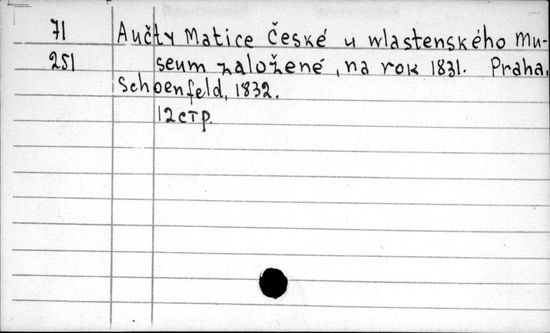 71 Aučty Matice České u wlastenského Mu-
251 seum založené, na rok 1831. Praha,
Schoenfeld, 1832.
12 стр.